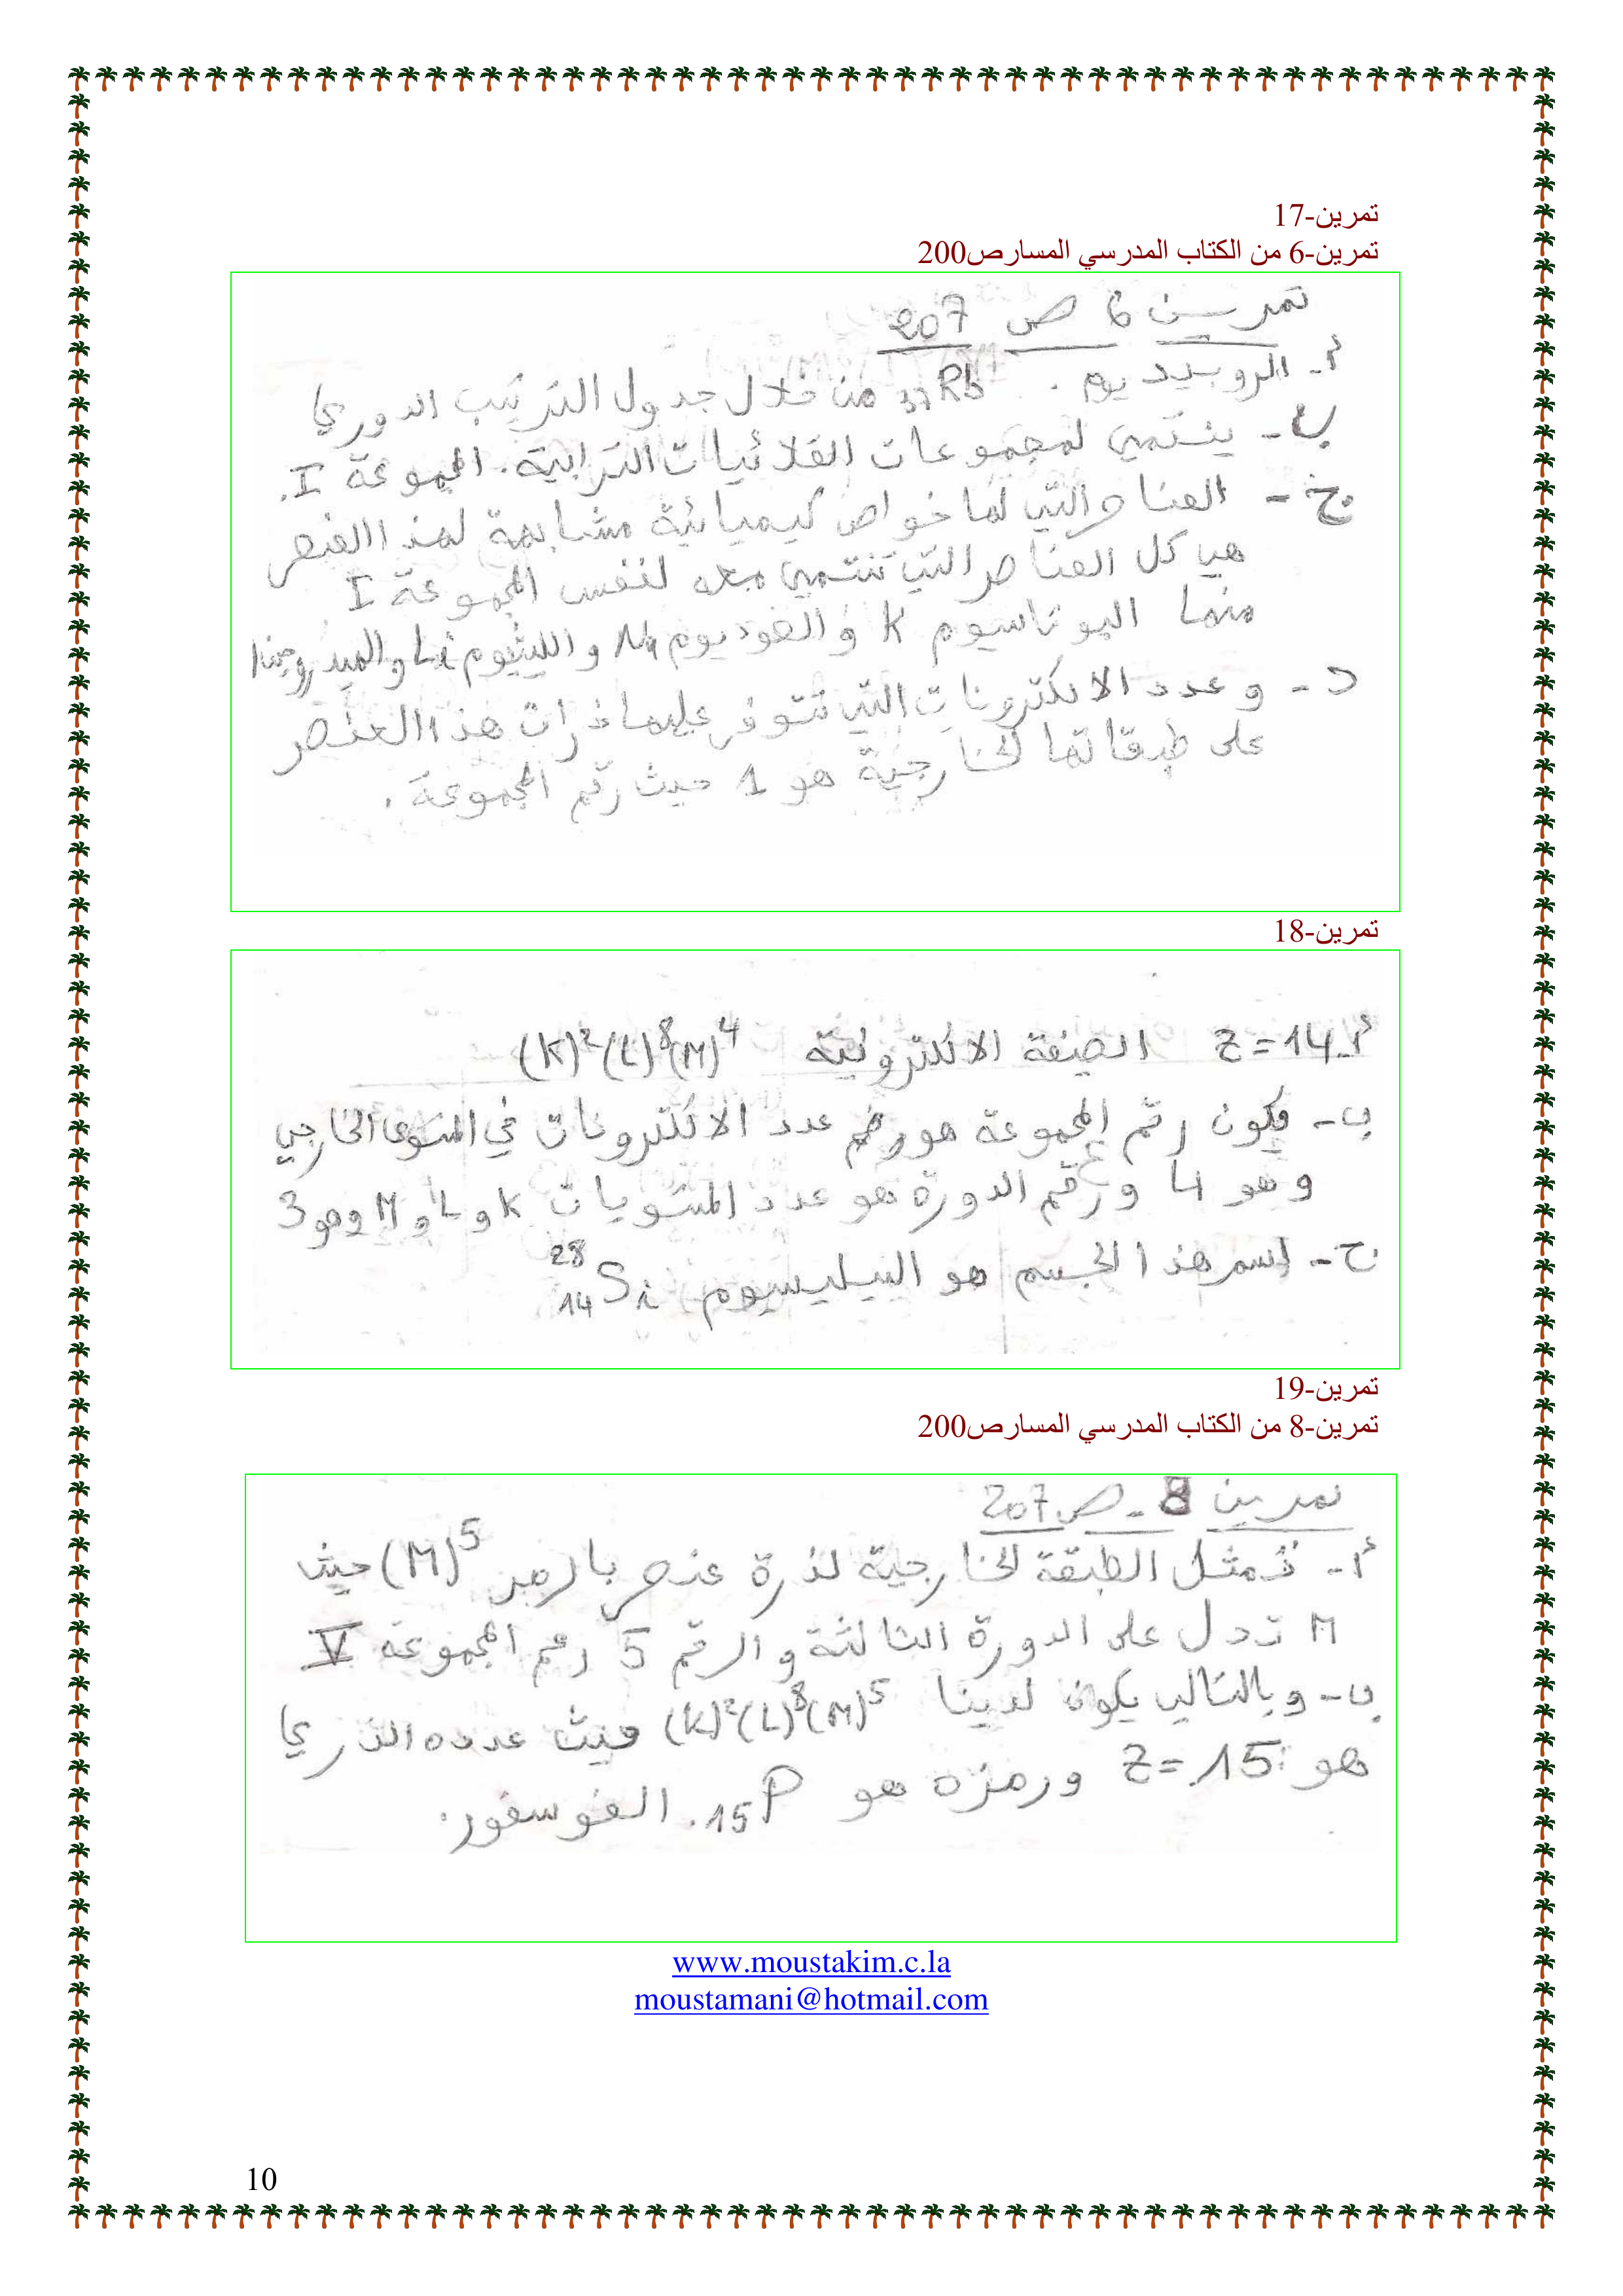 تمرين-17
تمرين-6 من الكتاب المدرسي المسارص200
تمرين 6 ص 207
أ- الروبيديوم . 37Rb من خلال جدول الترتيب الدوري
ب- ينتمي لمجموعات القلائيات الترابية. المجموعة I.
ج- العناصر التي لها خواص كيميائية مشابهة لهذا العنصر
هي كل العناصر التي تنتمي معه لنفس المجموعة I
منها البوتاسيوم K و الصوديوم Na و الليثيوم Li و الهيدروجين H
د- و عدد الالكترونات التي تتوفر عليها ذرات هذا العنصر
على طبقاتها الخارجية هو 1 حيث رقم المجموعة.
تمرين-18
أ. Z=14 الصيغة الالكترونية (K)²(L)⁸(M)⁴
ب- فيكون رقم المجموعة هو عدد الالكترونات في المستوى الخارجي
وهو 4 و رقم الدورة هو عدد المستويات K و L و M وهو 3
ج- إسم هذا الجسم هو السيليسيوم ²⁸₁₄Si
تمرين-19
تمرين-8 من الكتاب المدرسي المسارص200
تمرين 8 - ص 207
أ- تمثل الطبقة الخارجية لذرة عنصر بالرمز (M)⁵ حيث
M تدل على الدورة الثالثة و الرقم 5 رقم المجموعة V
ب- و بالتالي يكون لدينا (K)²(L)⁸(M)⁵ حيث عدده الذري
هو: Z=15 ورمزه هو 15P. الفوسفور.
www.moustakim.c.la
moustamani@hotmail.com
10